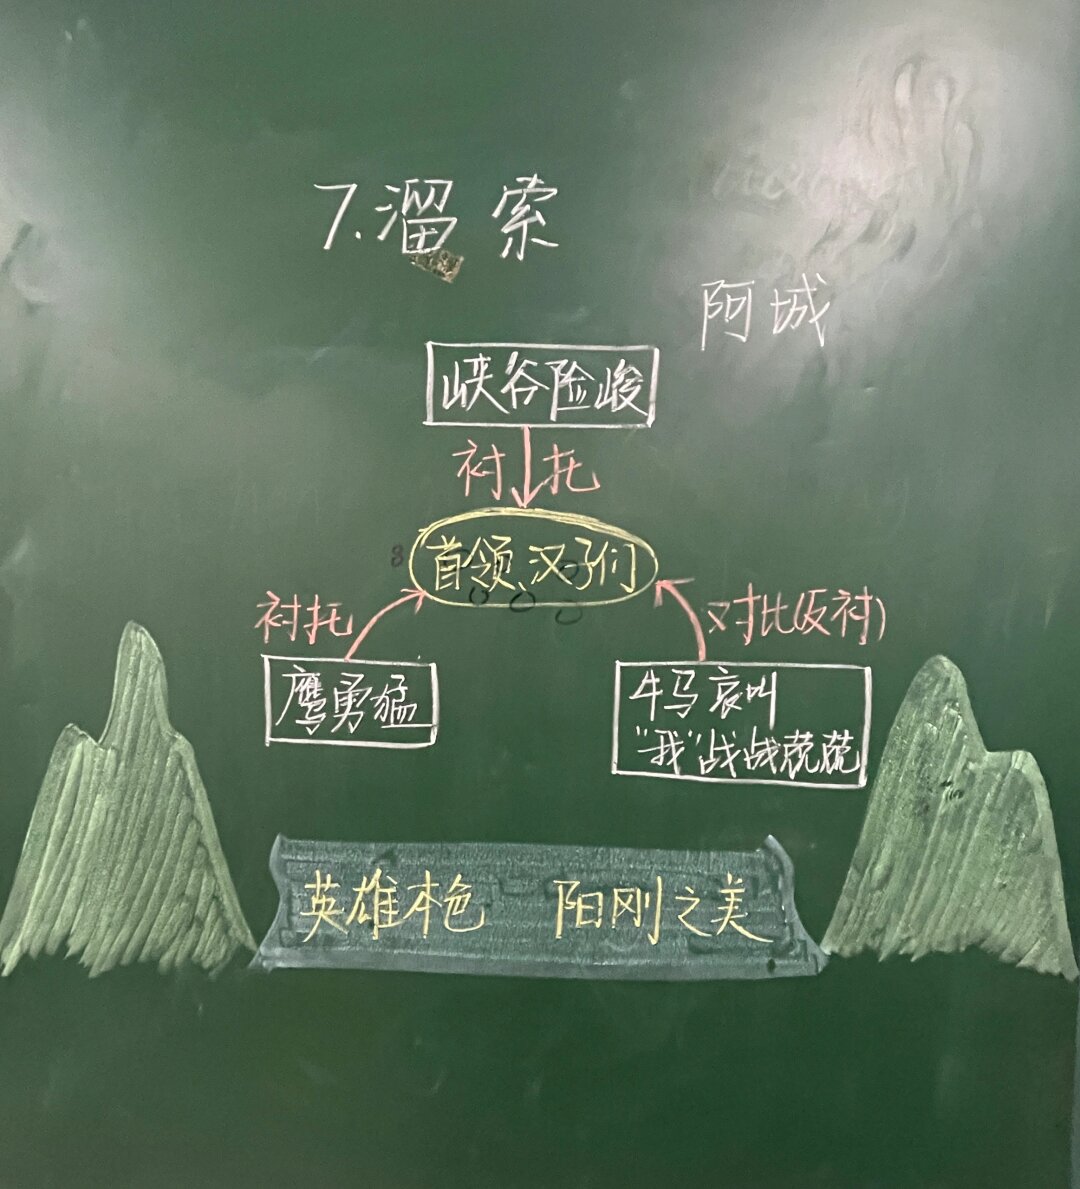 7.溜索
阿城
峡谷险峻
衬托
首领、汉子们
衬托
对比(反衬)
鹰勇猛
牛马哀叫
"我"战战兢兢
英雄本色 阳刚之美